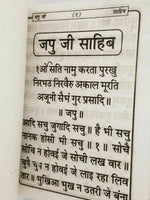 जपु जी (१) साहिब
जपु जी साहिब
१ओं सति नामु करता पुरखु
निरभउ निरवैरु अकाल मूरति
अजूनी सैभं गुर प्रसादि॥
॥ जपु ॥
आदि सचु जुगादि सचु॥ है भी सचु
नानक होसी भी सचु ॥ १॥ सोचै
सोचि न होवई जे सोची लख वार॥
चुपै चुप न होवई जे लाइ रहा लिव
तार॥ भुखिआ भुख न उतरी जे बंना